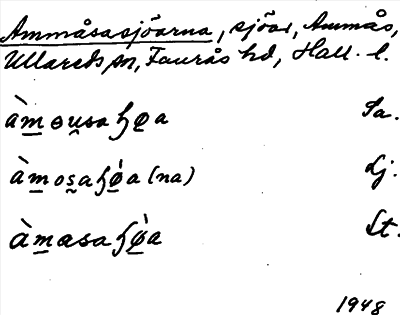 Ammåsasjöarna, sjöar, Ammås,
Ullareds sn, Faurås hd, Hall. l.
àm̲ɵu̲saɧø̲a Sa.
àm̲os̲aɧø̲̀a (na) Lj.
àm̲asaɧø̲̀a St.
1948